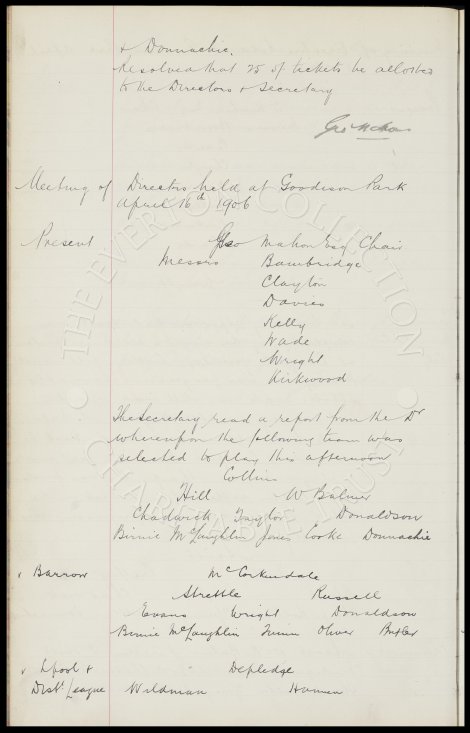 & Donnachie.
Resolved that 25 5/ tickets be allowed
to the Directors & Secretary
Geo Mahon
Meeting of Directors held at Goodison Park
April 16th 1906
Present Geo Mahon Esq Chair
Messrs Bainbridge
Clayton
Davies
Kelly
Wade
Wright
Kirkwood
The Secretary read a report from the Dr
whereupon the following team was
selected to play this afternoon
Collins
Hill W Balmer
Chadwick Taylor Donaldson
Birnie McLaughlin Jones Cooke Donnachie
v Barrow McCorkindale
Strettle Russell
Evans Wright Donaldson
Birnie McLaughlin Oliver Butler
v Lpool &
Dist League
Depledge
Wildman
THE EVERTON COLLECTION
CHARITABLE TRUST